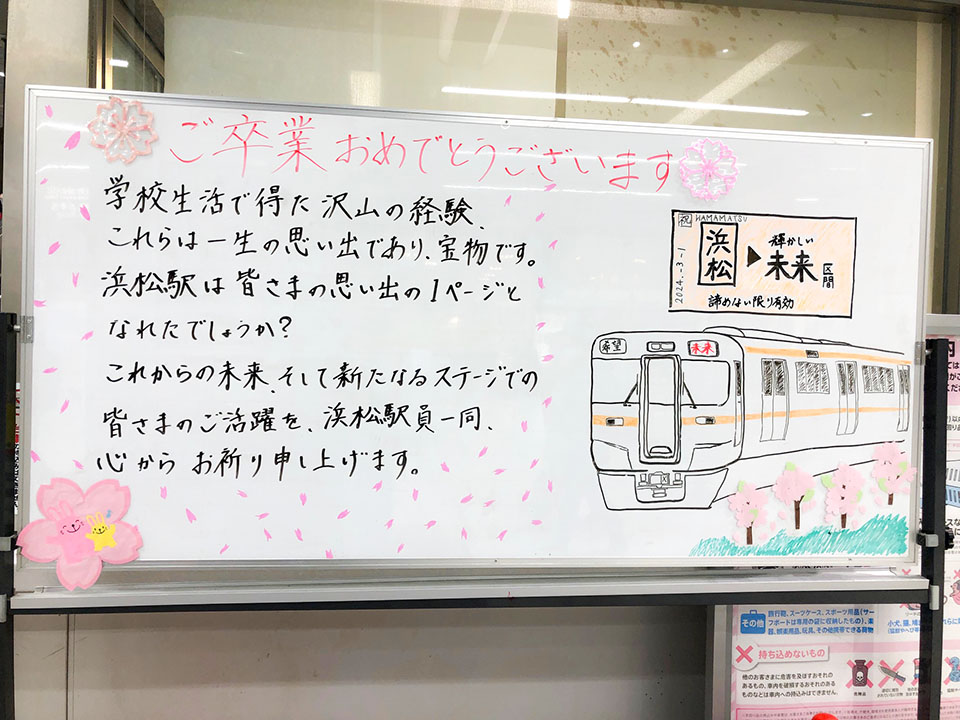 ご卒業おめでとうございます
学校生活で得た沢山の経験、
これらは一生の思い出であり、宝物です。
浜松駅は皆さまの思い出の1ページと
なれたでしょうか?
これからの未来、そして新たなるステージでの
皆さまのご活躍を、浜松駅員一同、
心からお祈り申し上げます。
祝 HAMAMATSU
浜松 ▶ 輝かしい未来 区間
2024.-3.-1
諦めない限り有効
希望
未来
その他
旅行鞄、スーツケース、スポーツ用品(サー
フボードは専用の袋に収納したもの)、楽
器、娯楽用品、玩具、その他携帯できる荷物
小犬、猫、鳩
持ち込めないもの
他のお客さまに危害を及ぼすおそれの
あるもの、車内を破損するおそれのある
ものなどは車内への持込みはできません。
危険品